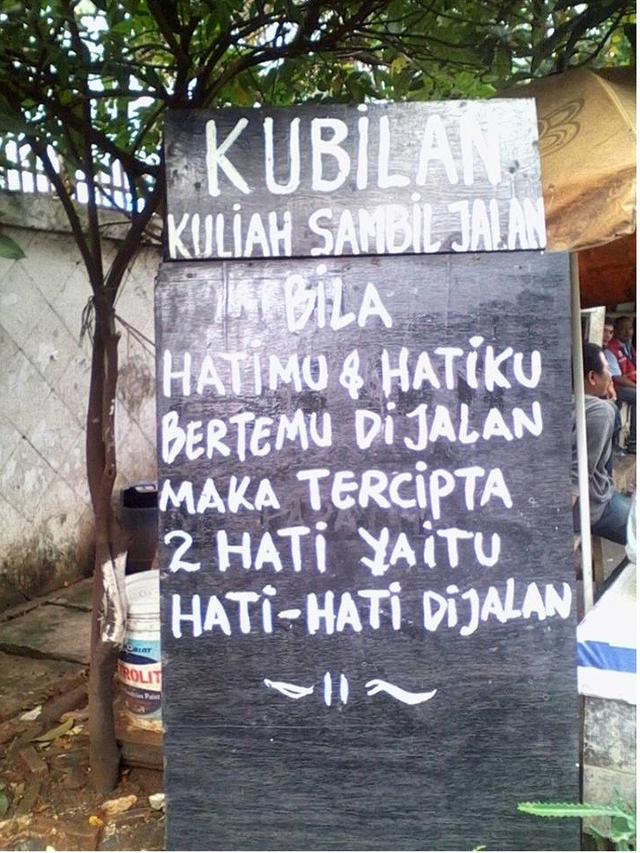 KUBiLAN
KULiAH SAMBiL JALAN
BiLA
HATiMU & HATiKU
BERTEMU DiJALAN
MAKA TERCiPTA
2 HATi YAiTU
HATi-HATi DiJALAN